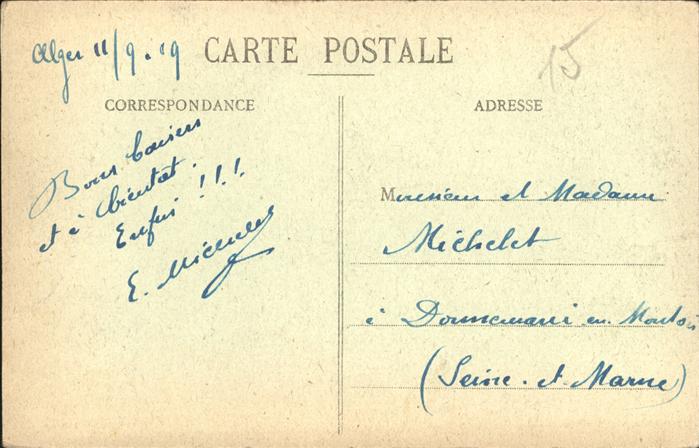 Alger 11/9.19
CARTE POSTALE
15
CORRESPONDANCE
Bons baisers
et à bientôt.
Enfin !!!
E. Michelet
ADRESSE
Monsieur et Madame
Michelet
à Donnemarie en Montois
(Seine-et-Marne)